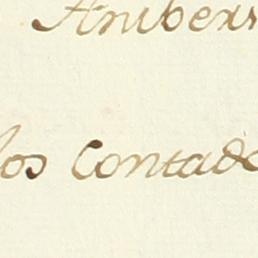 Anibers
los Contado